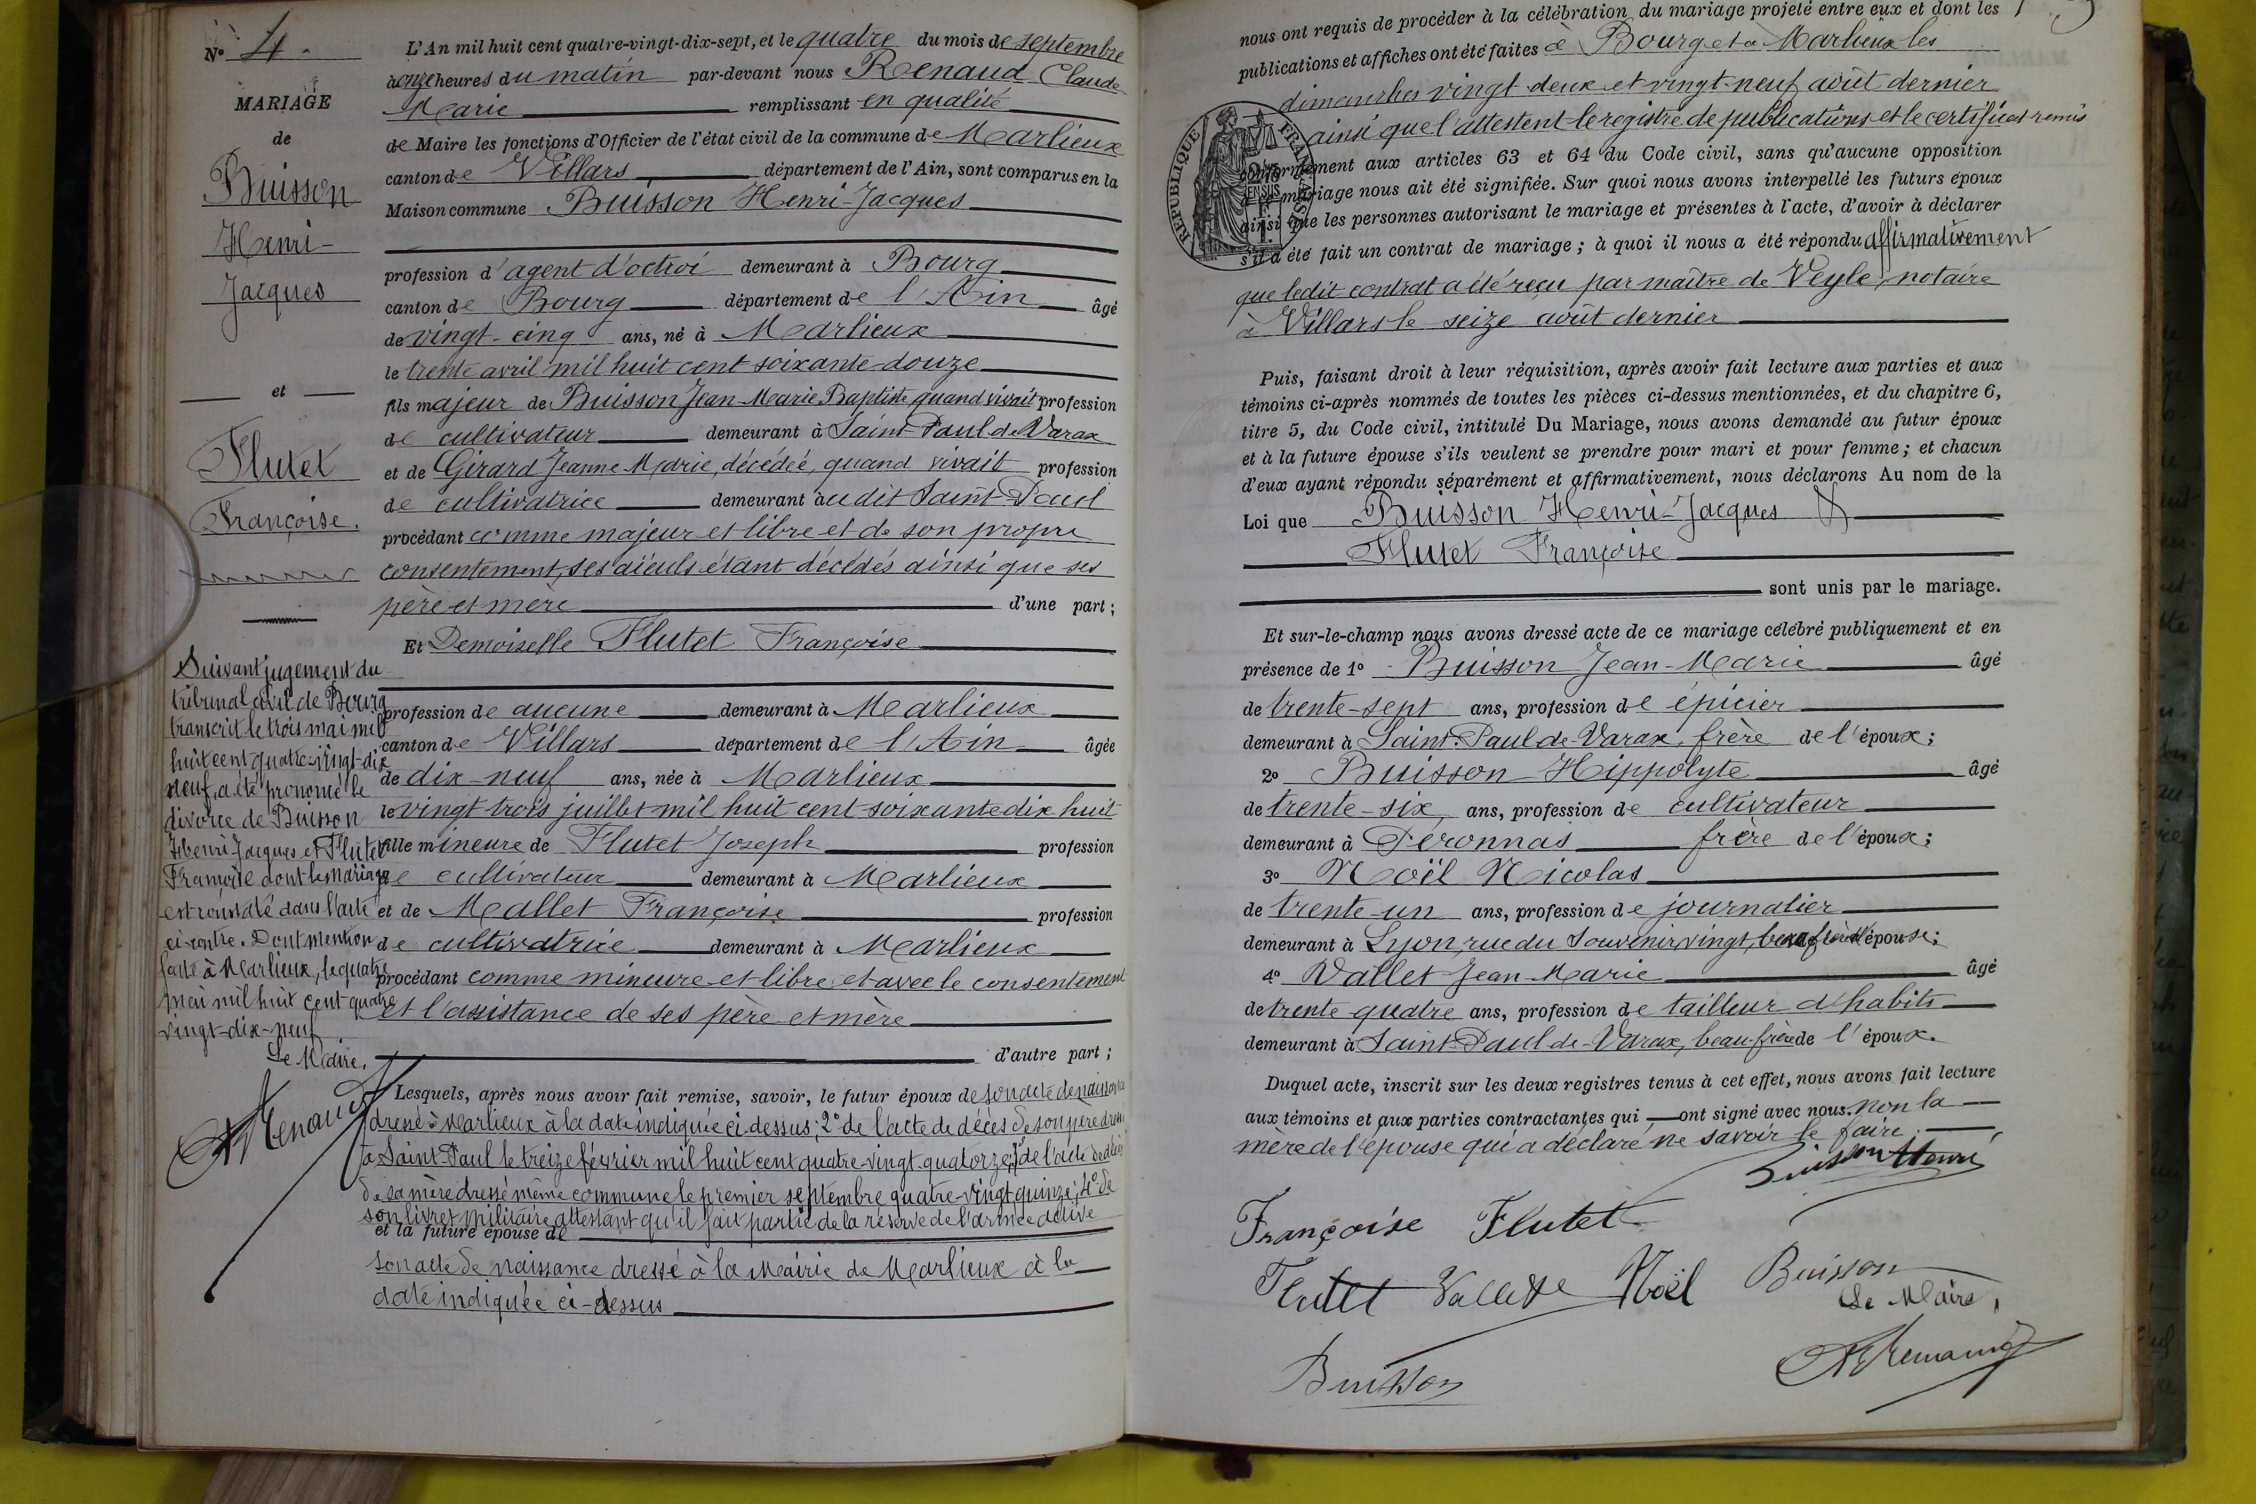 N° 4.
MARIAGE
de
Buisson
Henri-
Jacques
et
Flutet
Françoise.
Suivant jugement du
tribunal civil de Bourg
transcrit le trois mai mil
huit cent quatre-vingt-dix
neuf, a été prononcé le
divorce de Buisson
Henri Jacques et Flutet
Françoise dont le mariage
est constaté dans l'acte
ci-contre. Dont mention
faite à Marlieux, le quatre
mai mil huit cent quatre
vingt-dix-neuf
Le Maire,
Renaud
L'An mil huit cent quatre-vingt-dix-sept, et le quatre du mois de septembre
à onze heures du matin par-devant nous Renaud Claude
Marie remplissant en qualité
de Maire les fonctions d'Officier de l'état civil de la commune de Marlieux
canton de Villars département de l'Ain, sont comparus en la
Maison commune Buisson Henri-Jacques
profession d'agent d'octroi demeurant à Bourg
canton de Bourg département de l'Ain âgé
de vingt-cinq ans, né à Marlieux
le trente avril mil huit cent soixante-douze
fils majeur de Buisson Jean-Marie Baptiste quand vivait profession
de cultivateur demeurant à Saint-Paul de Varax
et de Girard Jeanne Marie, décédée, quand vivait profession
de cultivatrice demeurant audit Saint-Paul
procédant comme majeur et libre et de son propre
consentement, ses aïeuls étant décédés ainsi que ses
père et mère d'une part;
Et Demoiselle Flutet Françoise
profession de aucune demeurant à Marlieux
canton de Villars département de l'Ain âgée
de dix-neuf ans, née à Marlieux
le vingt trois juillet mil huit cent soixante dix huit
fille mineure de Flutet Joseph profession
de cultivateur demeurant à Marlieux
et de Mallet Françoise profession
de cultivatrice demeurant à Marlieux
procédant comme mineure et libre et avec le consentement
et l'assistance de ses père et mère
d'autre part;
Lesquels, après nous avoir fait remise, savoir, le futur époux de son acte de naissance
dressé à Marlieux à la date indiquée ci-dessus; 2° de l'acte de décès de son père dressé
à Saint-Paul le treize février mil huit cent quatre-vingt-quatorze; 3° de l'acte de décès
de sa mère dressé même commune le premier septembre quatre-vingt quinze; 4° de
son livret militaire attestant qu'il fait partie de la réserve de l'armée active
et la future épouse de
son acte de naissance dressé à la Mairie de Marlieux à la
date indiquée ci-dessus
nous ont requis de procéder à la célébration du mariage projeté entre eux et dont les
publications et affiches ont été faites à Bourg et à Marlieux les
dimanches vingt-deux et vingt-neuf août dernier
ainsi que l'attestent le registre de publications et le certificat remis
conformément aux articles 63 et 64 du Code civil, sans qu'aucune opposition
à ce mariage nous ait été signifiée. Sur quoi nous avons interpellé les futurs époux
ainsi que les personnes autorisant le mariage et présentes à l'acte, d'avoir à déclarer
s'il a été fait un contrat de mariage; à quoi il nous a été répondu affirmativement
que ledit contrat a été reçu par maître de Veyle, notaire
à Villars le seize août dernier
RÉPUBLIQUE FRANÇAISE
Puis, faisant droit à leur réquisition, après avoir fait lecture aux parties et aux
témoins ci-après nommés de toutes les pièces ci-dessus mentionnées, et du chapitre 6,
titre 5, du Code civil, intitulé Du Mariage, nous avons demandé au futur époux
et à la future épouse s'ils veulent se prendre pour mari et pour femme; et chacun
d'eux ayant répondu séparément et affirmativement, nous déclarons Au nom de la
Loi que Buisson Henri-Jacques &
Flutet Françoise
sont unis par le mariage.
Et sur-le-champ nous avons dressé acte de ce mariage célébré publiquement et en
présence de 1° Buisson Jean-Marie âgé
de trente-sept ans, profession de épicier
demeurant à Saint-Paul-de-Varax, frère de l'époux;
2° Buisson Hippolyte âgé
de trente-six ans, profession de cultivateur
demeurant à Péronnas frère de l'époux;
3° Noël Nicolas
de trente-un ans, profession de journalier
demeurant à Lyon, rue du Souvenir vingt, beau frère de l'épouse;
4° Vallet Jean-Marie âgé
de trente quatre ans, profession de tailleur d'habits
demeurant à Saint-Paul-de-Varax, beau-frère de l'époux.
Duquel acte, inscrit sur les deux registres tenus à cet effet, nous avons fait lecture
aux témoins et aux parties contractantes qui ont signé avec nous. non la
mère de l'épouse qui a déclaré ne savoir le faire.
Buisson Henri
Françoise Flutet
Flutet Vallet Noël Buisson
Le Maire,
Buisson
Renaud